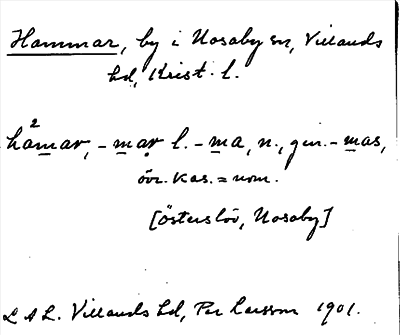 Hammar, by i Nosaby sn, Villands
hd, Krist. l.
hå²mar, -mạr l. -ma, n., gen. -mas,
övr. kas. = nom.
[Österslöv, Nosaby]
L A L. Villands hd, Per Larsson 1901.